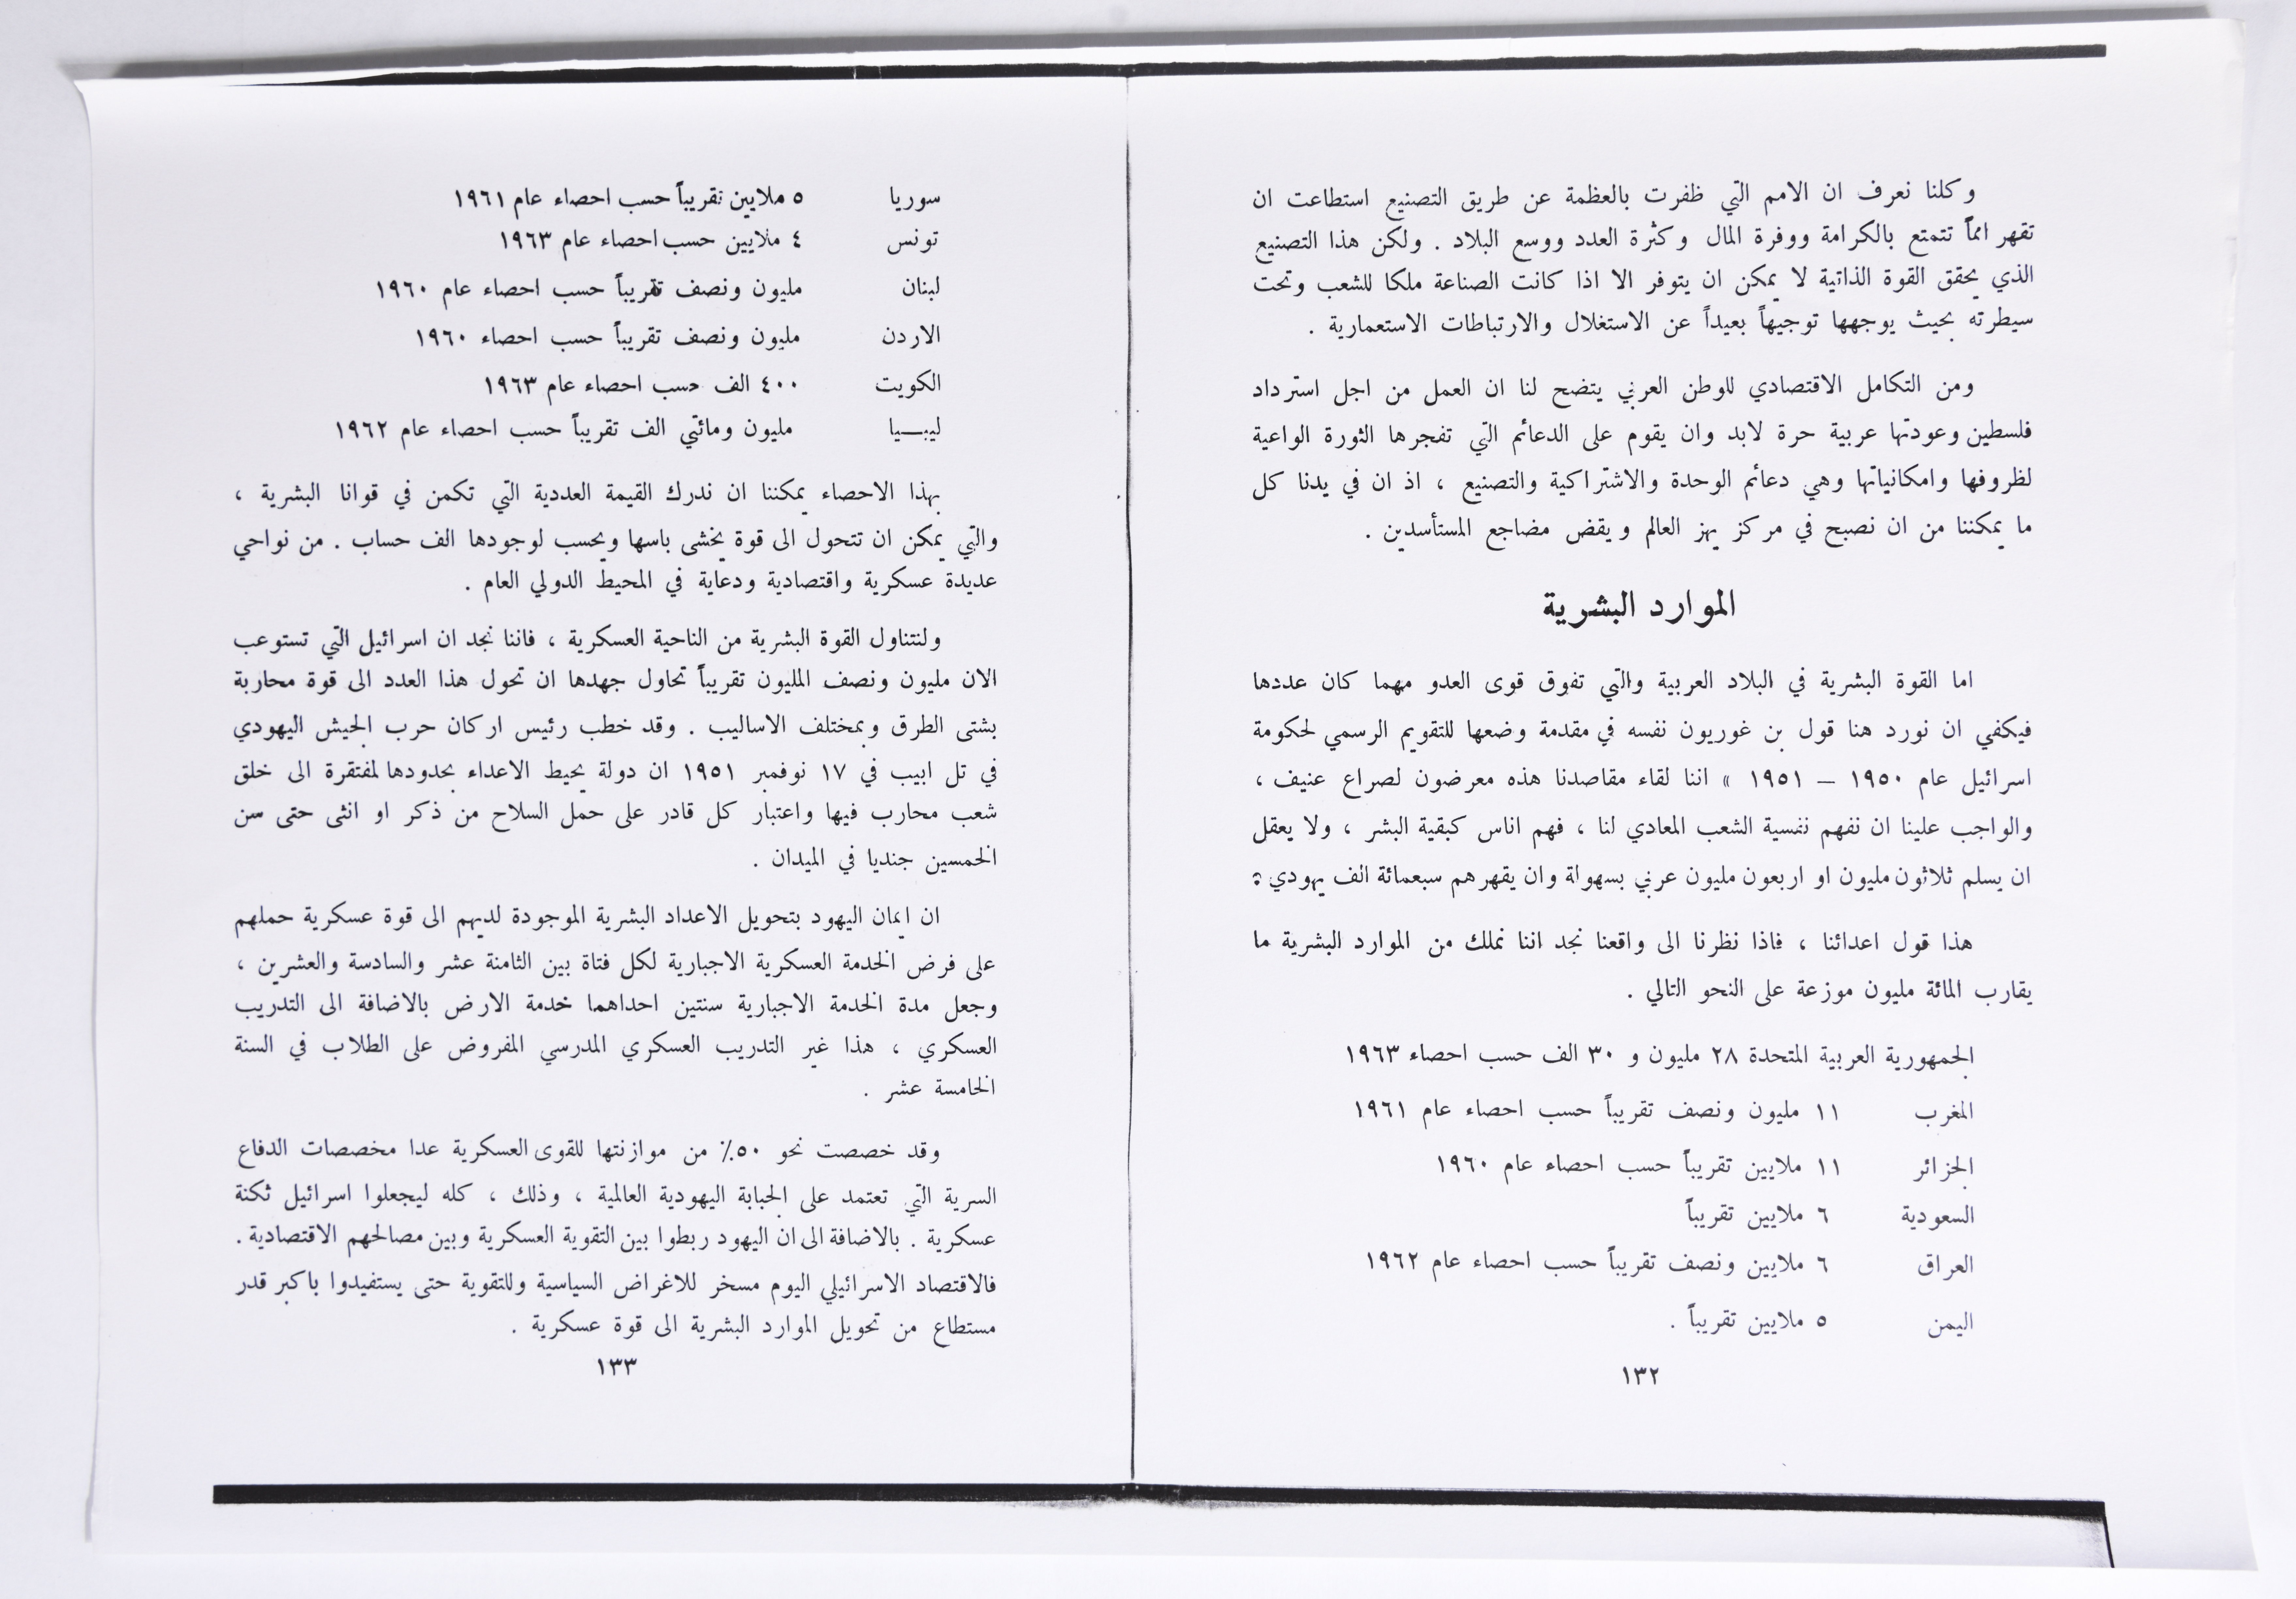 وكلنا نعرف ان الامم التي ظفرت بالعظمة عن طريق التصنيع استطاعت ان
تقهر امماً تتمتع بالكرامة ووفرة المال وكثرة العدد ووسع البلاد . ولكن هذا التصنيع
الذي يحقق القوة الذاتية لا يمكن ان يتوفر الا اذا كانت الصناعة ملكا للشعب وتحت
سيطرته بحيث يوجهها توجيهاً بعيداً عن الاستغلال والارتباطات الاستعمارية .
ومن التكامل الاقتصادي للوطن العربي يتضح لنا ان العمل من اجل استرداد
فلسطين وعودتها عربية حرة لابد وان يقوم على الدعائم التي تفجرها الثورة الواعية
لظروفها وامكانياتها وهي دعائم الوحدة والاشتراكية والتصنيع ، اذ ان في يدنا كل
ما يمكننا من ان نصبح في مركز يهز العالم ويقض مضاجع المستأسدين .
الموارد البشرية
اما القوة البشرية في البلاد العربية والتي تفوق قوى العدو مهما كان عددها
فيكفي ان نورد هنا قول بن غوريون نفسه في مقدمة وضعها للتقويم الرسمي لحكومة
اسرائيل عام ١٩٥٠ – ١٩٥١ » اننا لقاء مقاصدنا هذه معرضون لصراع عنيف ،
والواجب علينا ان نفهم نفسية الشعب المعادي لنا ، فهم اناس كبقية البشر ، ولا يعقل
ان يسلم ثلاثون مليون او اربعون مليون عربي بسهولة وان يقهرهم سبعمائة الف يهودي
هذا قول اعدائنا ، فاذا نظرنا الى واقعنا نجد اننا نملك من الموارد البشرية ما
يقارب المائة مليون موزعة على النحو التالي .
الجمهورية العربية المتحدة ٢٨ مليون و ٣٠ الف حسب احصاء ١٩٦٣
المغرب ١١ مليون ونصف تقريباً حسب احصاء عام ١٩٦١
الجزائر ١١ ملايين تقريباً حسب احصاء عام ١٩٦٠
السعودية ٦ ملايين تقريباً
العراق ٦ ملايين ونصف تقريباً حسب احصاء عام ١٩٦٢
اليمن ٥ ملايين تقريباً .
١٣٢
سوريا ٥ ملايين تقريباً حسب احصاء عام ١٩٦١
تونس ٤ ملايين حسب احصاء عام ١٩٦٣
لبنان مليون ونصف تقريباً حسب احصاء عام ١٩٦٠
الاردن مليون ونصف تقريباً حسب احصاء ١٩٦٠
الكويت ٤٠٠ الف حسب احصاء عام ١٩٦٣
ليبـــيا مليون ومائتي الف تقريباً حسب احصاء عام ١٩٦٢
بهذا الاحصاء يمكننا ان ندرك القيمة العددية التي تكمن في قوانا البشرية ،
والتي يمكن ان تتحول الى قوة يخشى باسها ويحسب لوجودها الف حساب . من نواحي
عديدة عسكرية واقتصادية ودعاية في المحيط الدولي العام .
ولنتناول القوة البشرية من الناحية العسكرية ، فاننا نجد ان اسرائيل التي تستوعب
الان مليون ونصف المليون تقريباً تحاول جهدها ان تحول هذا العدد الى قوة محاربة
بشتى الطرق وبمختلف الاساليب . وقد خطب رئيس اركان حرب الجيش اليهودي
في تل ابيب في ١٧ نوفمبر ١٩٥١ ان دولة يحيط الاعداء بحدودها لمفتقرة الى خلق
شعب محارب فيها واعتبار كل قادر على حمل السلاح من ذكر او انثى حتى سن
الخمسين جنديا في الميدان .
ان ايمان اليهود بتحويل الاعداد البشرية الموجودة لديهم الى قوة عسكرية حملهم
على فرض الخدمة العسكرية الاجبارية لكل فتاة بين الثامنة عشر والسادسة والعشرين ،
وجعل مدة الخدمة الاجبارية سنتين احداهما خدمة الارض بالاضافة الى التدريب
العسكري ، هذا غير التدريب العسكري المدرسي المفروض على الطلاب في السنة
الخامسة عشر .
وقد خصصت نحو ٥٠٪ من موازنتها للقوى العسكرية عدا مخصصات الدفاع
السرية التي تعتمد على الجباية اليهودية العالمية ، وذلك ، كله ليجعلوا اسرائيل ثكنة
عسكرية . بالاضافة الى ان اليهود ربطوا بين التقوية العسكرية وبين مصالحهم الاقتصادية .
فالاقتصاد الاسرائيلي اليوم مسخر للاغراض السياسية وللتقوية حتى يستفيدوا باكبر قدر
مستطاع من تحويل الموارد البشرية الى قوة عسكرية .
١٣٣